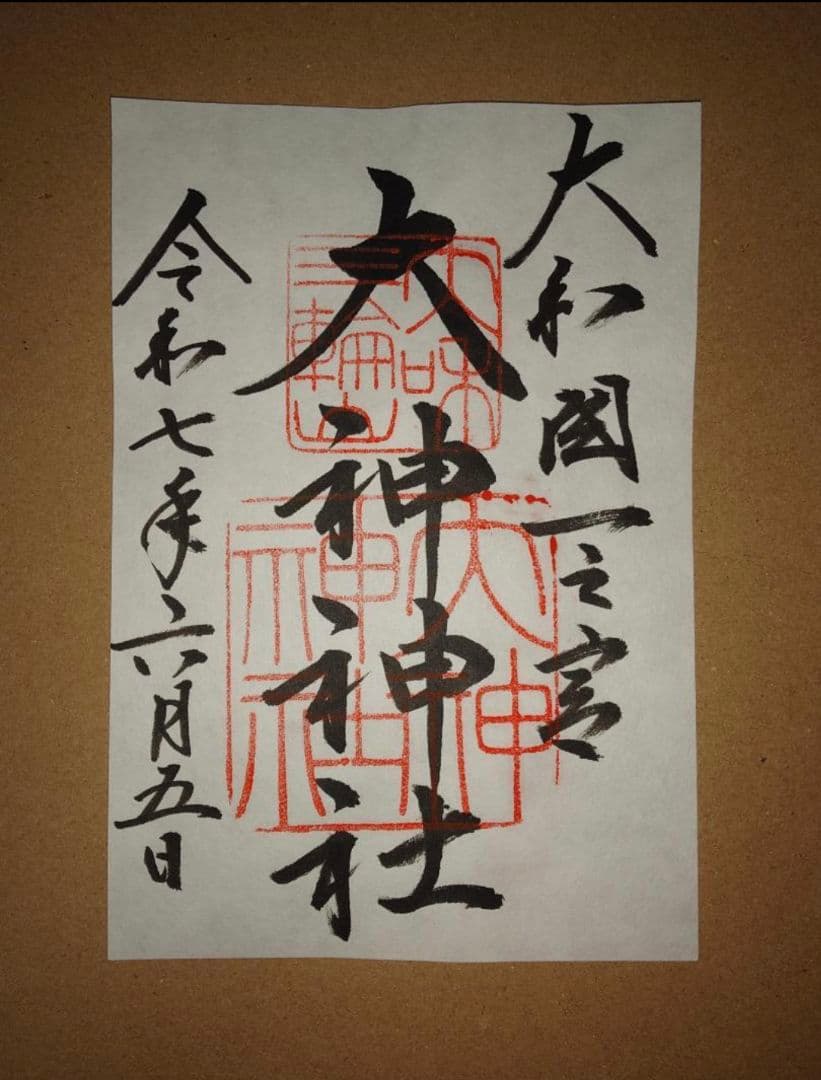 大和國一之宮
大神神社
三輪山
大神神社
令和七年六月五日